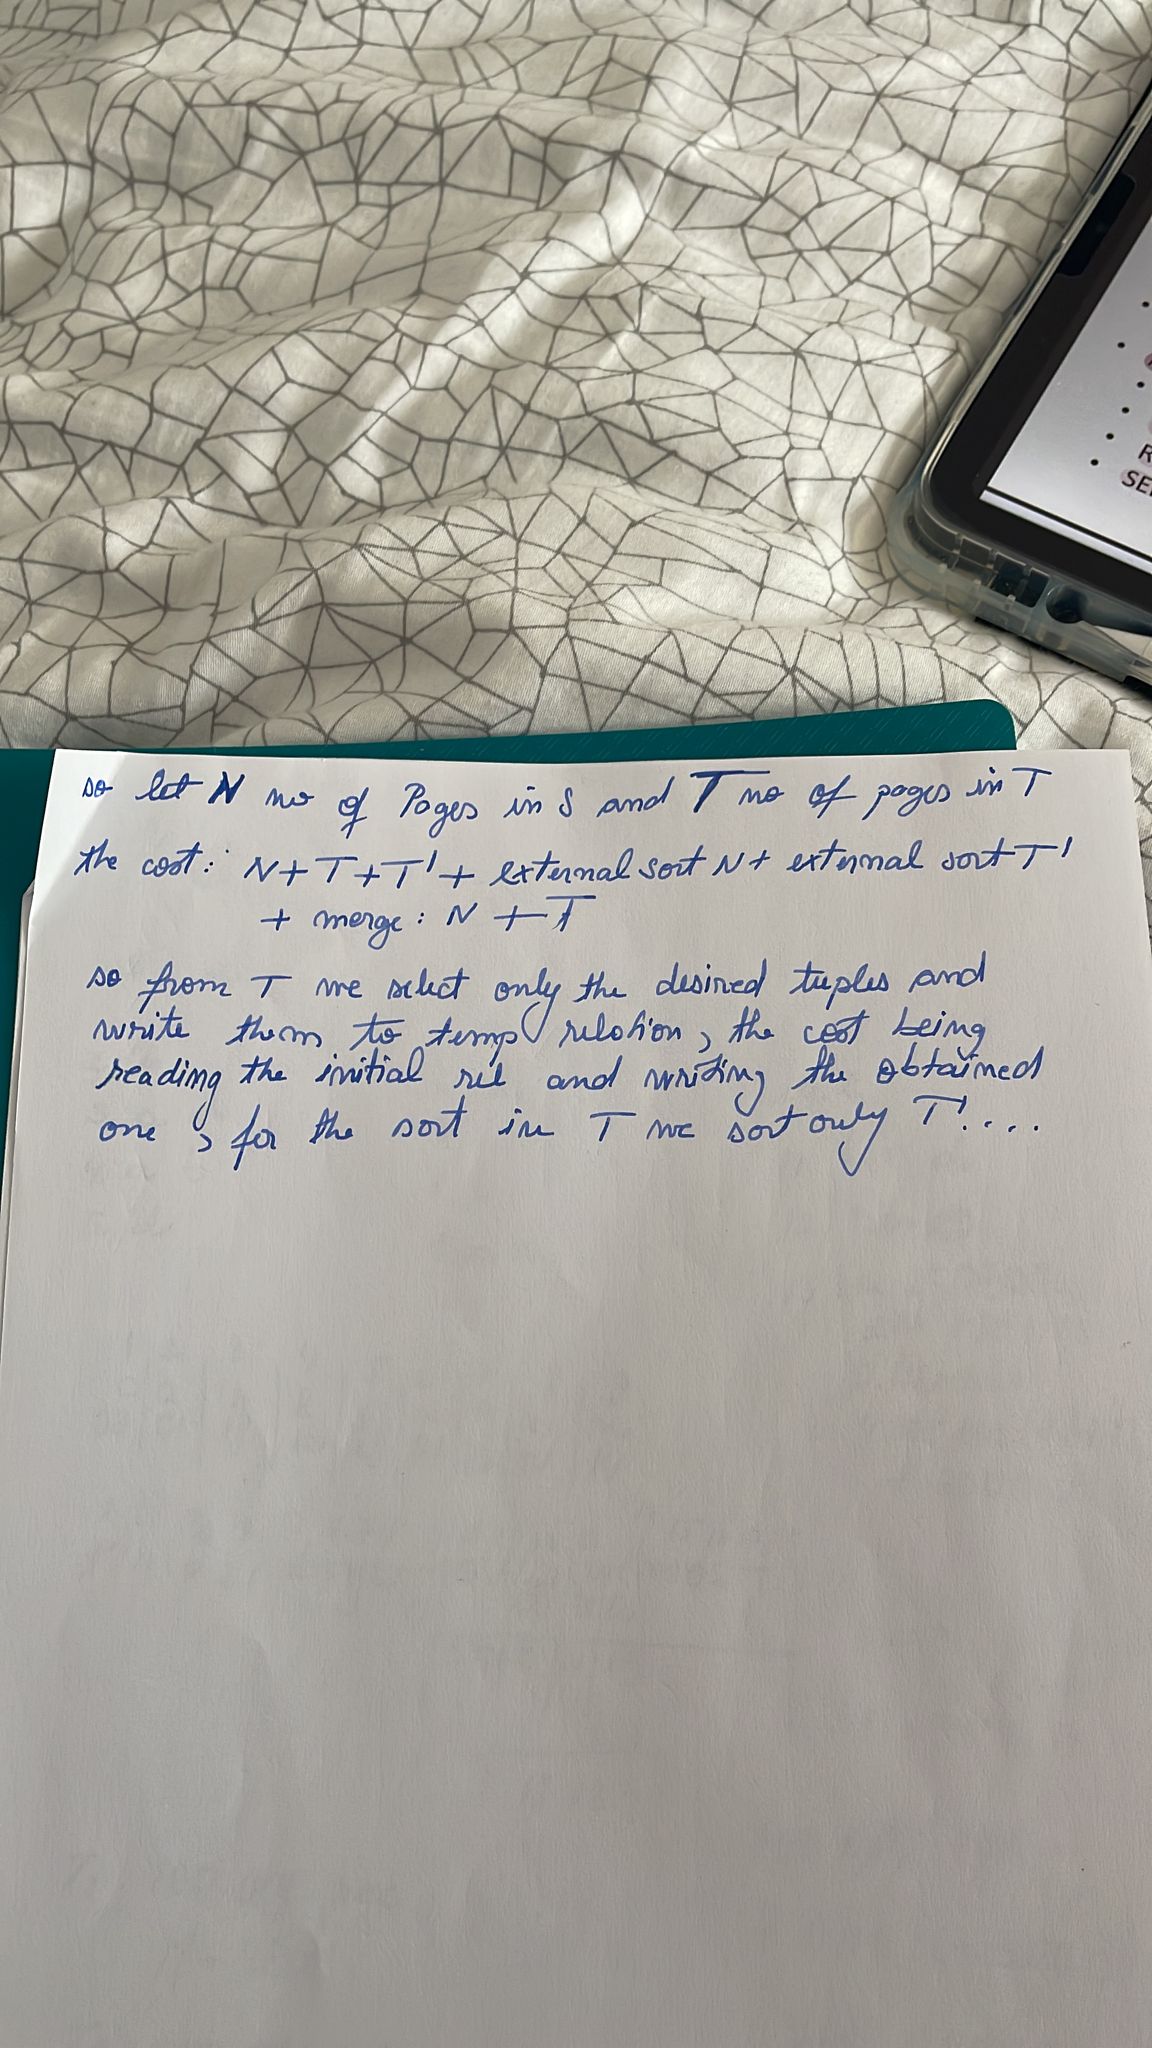 so let N no of Pages in S and T no of pages in T
the cost: N+T+T' + external sort N + external sort T'
+ merge: N + T
so from T we select only the desired tuples and
write them to temp relation, the cost being
reading the initial rel and writing the obtained
one, for the sort in T we sort only T'....
R
SE